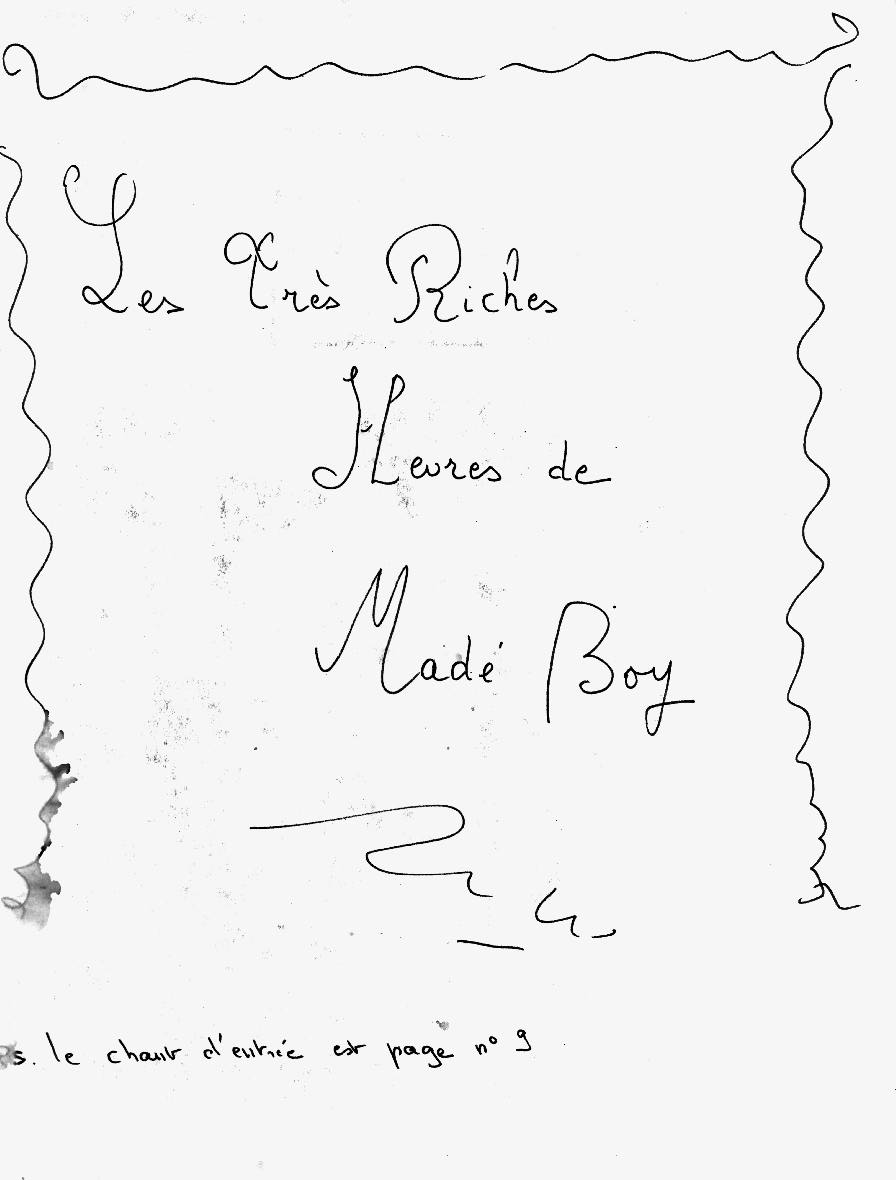 Les Très Riches
Heures de
Madé Boy
s. le chant d'entrée est page n° 9